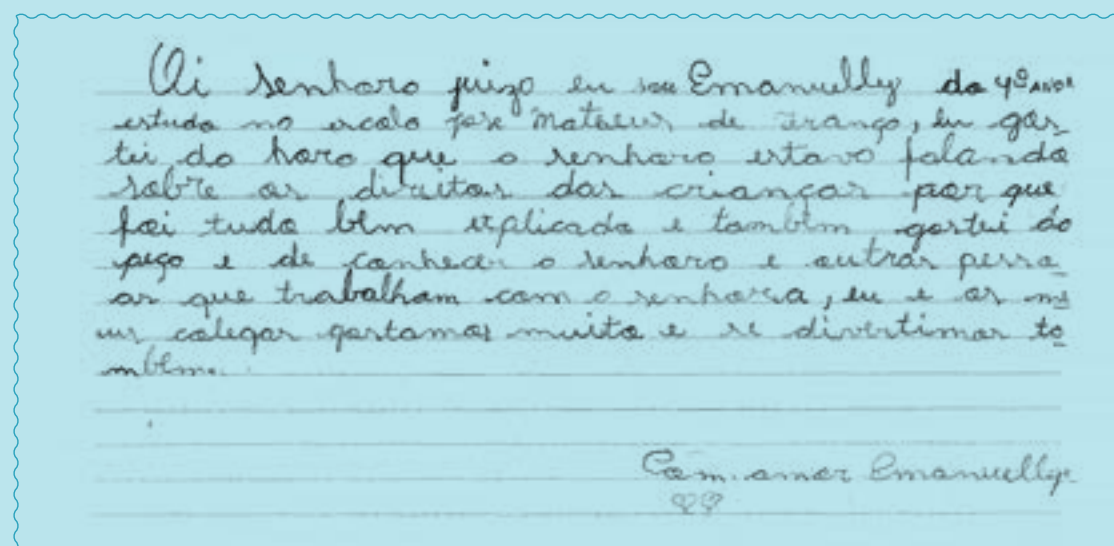 Oi senhora juiza eu sou Emanuelly do 4º ANOR
estudo na escola jose Mateus de frança, eu gos_
tei da hora que a senhora estava falando
sobre os direitos das crianças por que
foi tudo bem esplicado e também gostei da
peça e de conhecer a senhora e outras pesso_
as que trabalham com a senhora, eu e os me
us colegas gostamos muito e se divertimos ta
mbem.
Com amor Emanuellye